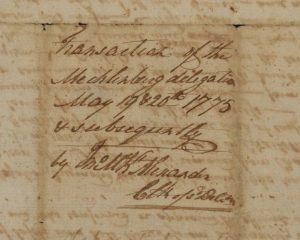 Transaction of the
Mecklenburg delegation
May 19 & 20th 1775
& subsequently
by Jno McKt Alexander